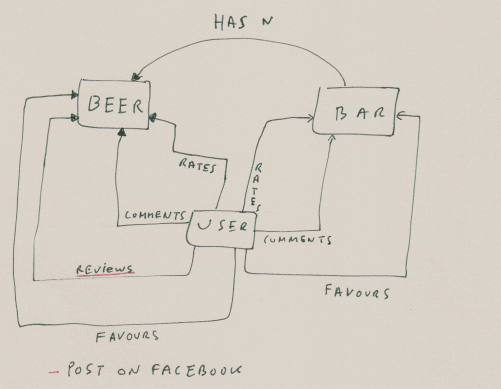 HAS N
BEER
BAR
RATES
RATES
COMMENTS
USER
COMMENTS
REVIEWS
FAVOURS
FAVOURS
- POST ON FACEBOOK